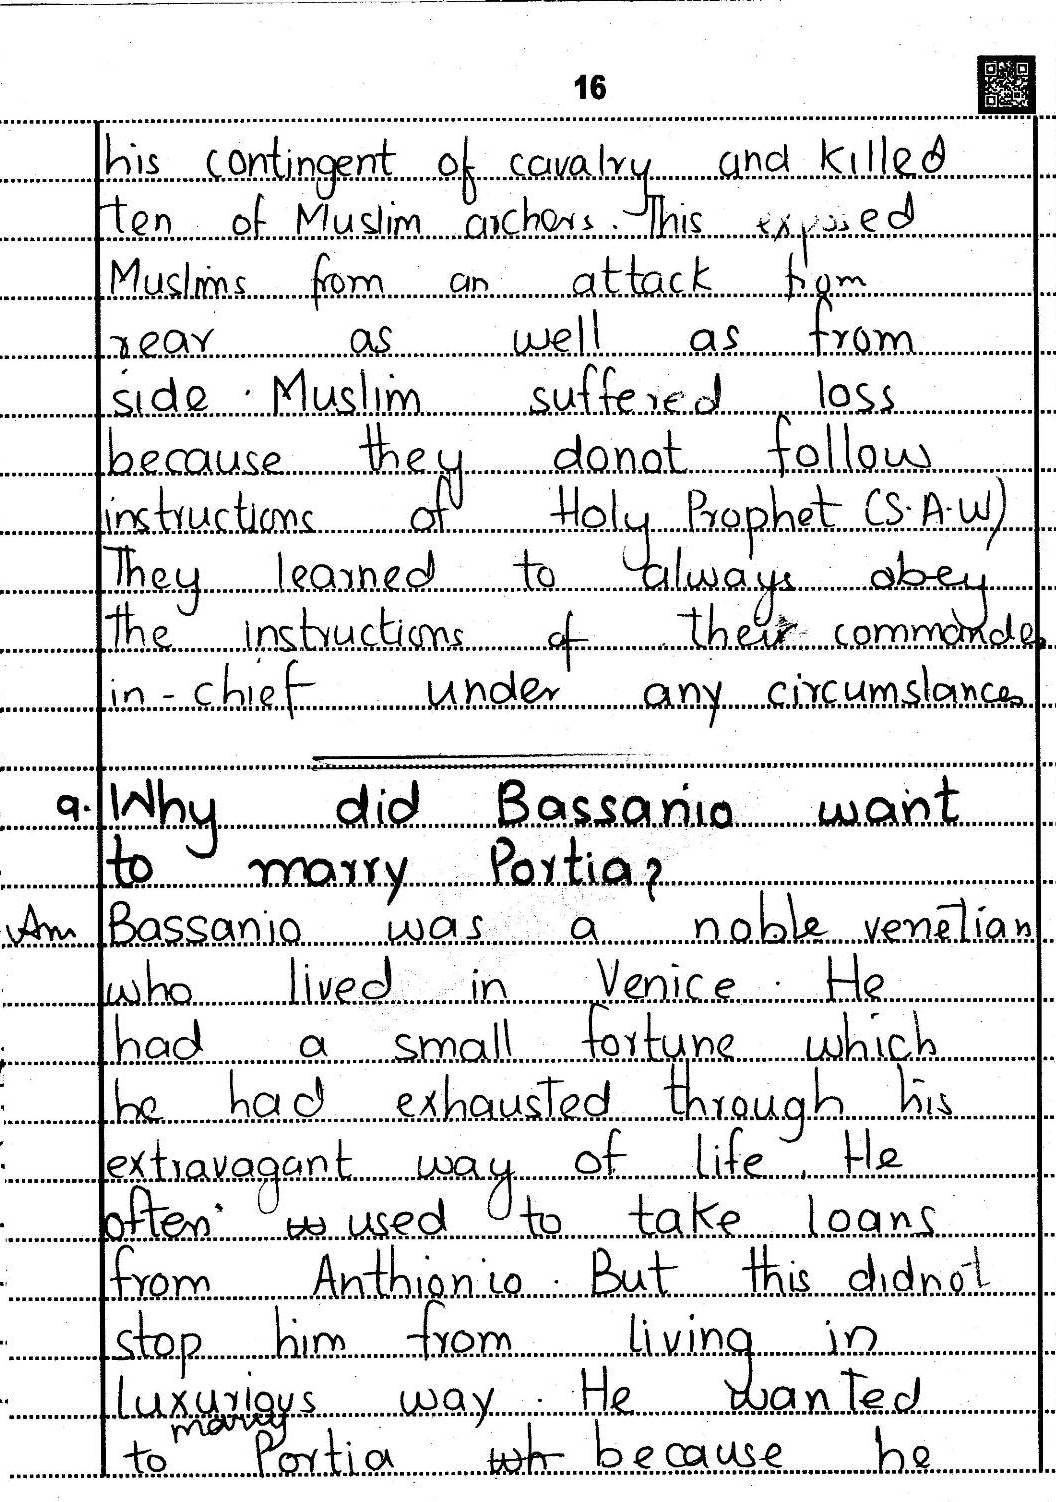 16
his contingent of cavalry and killed
ten of Muslim archers. This exposed
Muslims from an attack from
rear as well as from
side. Muslim suffered loss
because they donot follow
instructions of Holy Prophet (S.A.W)
They learned to always obey
the instructions of their commander
in-chief under any circumstances
9. Why did Bassanio want
to marry Portia?
Ans Bassanio was a noble venetian
who lived in Venice. He
had a small fortune which
he had exhausted through his
extravagant way of life. He
often used to take loans
from Anthionio. But this didnot
stop him from living in
luxurious way. He wanted
to marry Portia because he